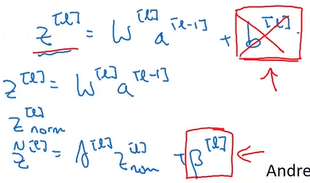 z^[l] = W^[l] a^[l-1] + b^[l]
z^[l] = W^[l] a^[l-1]
z^[l]_norm
z̃^[l] = γ^[l] z^[l]_norm + β^[l]
Andre